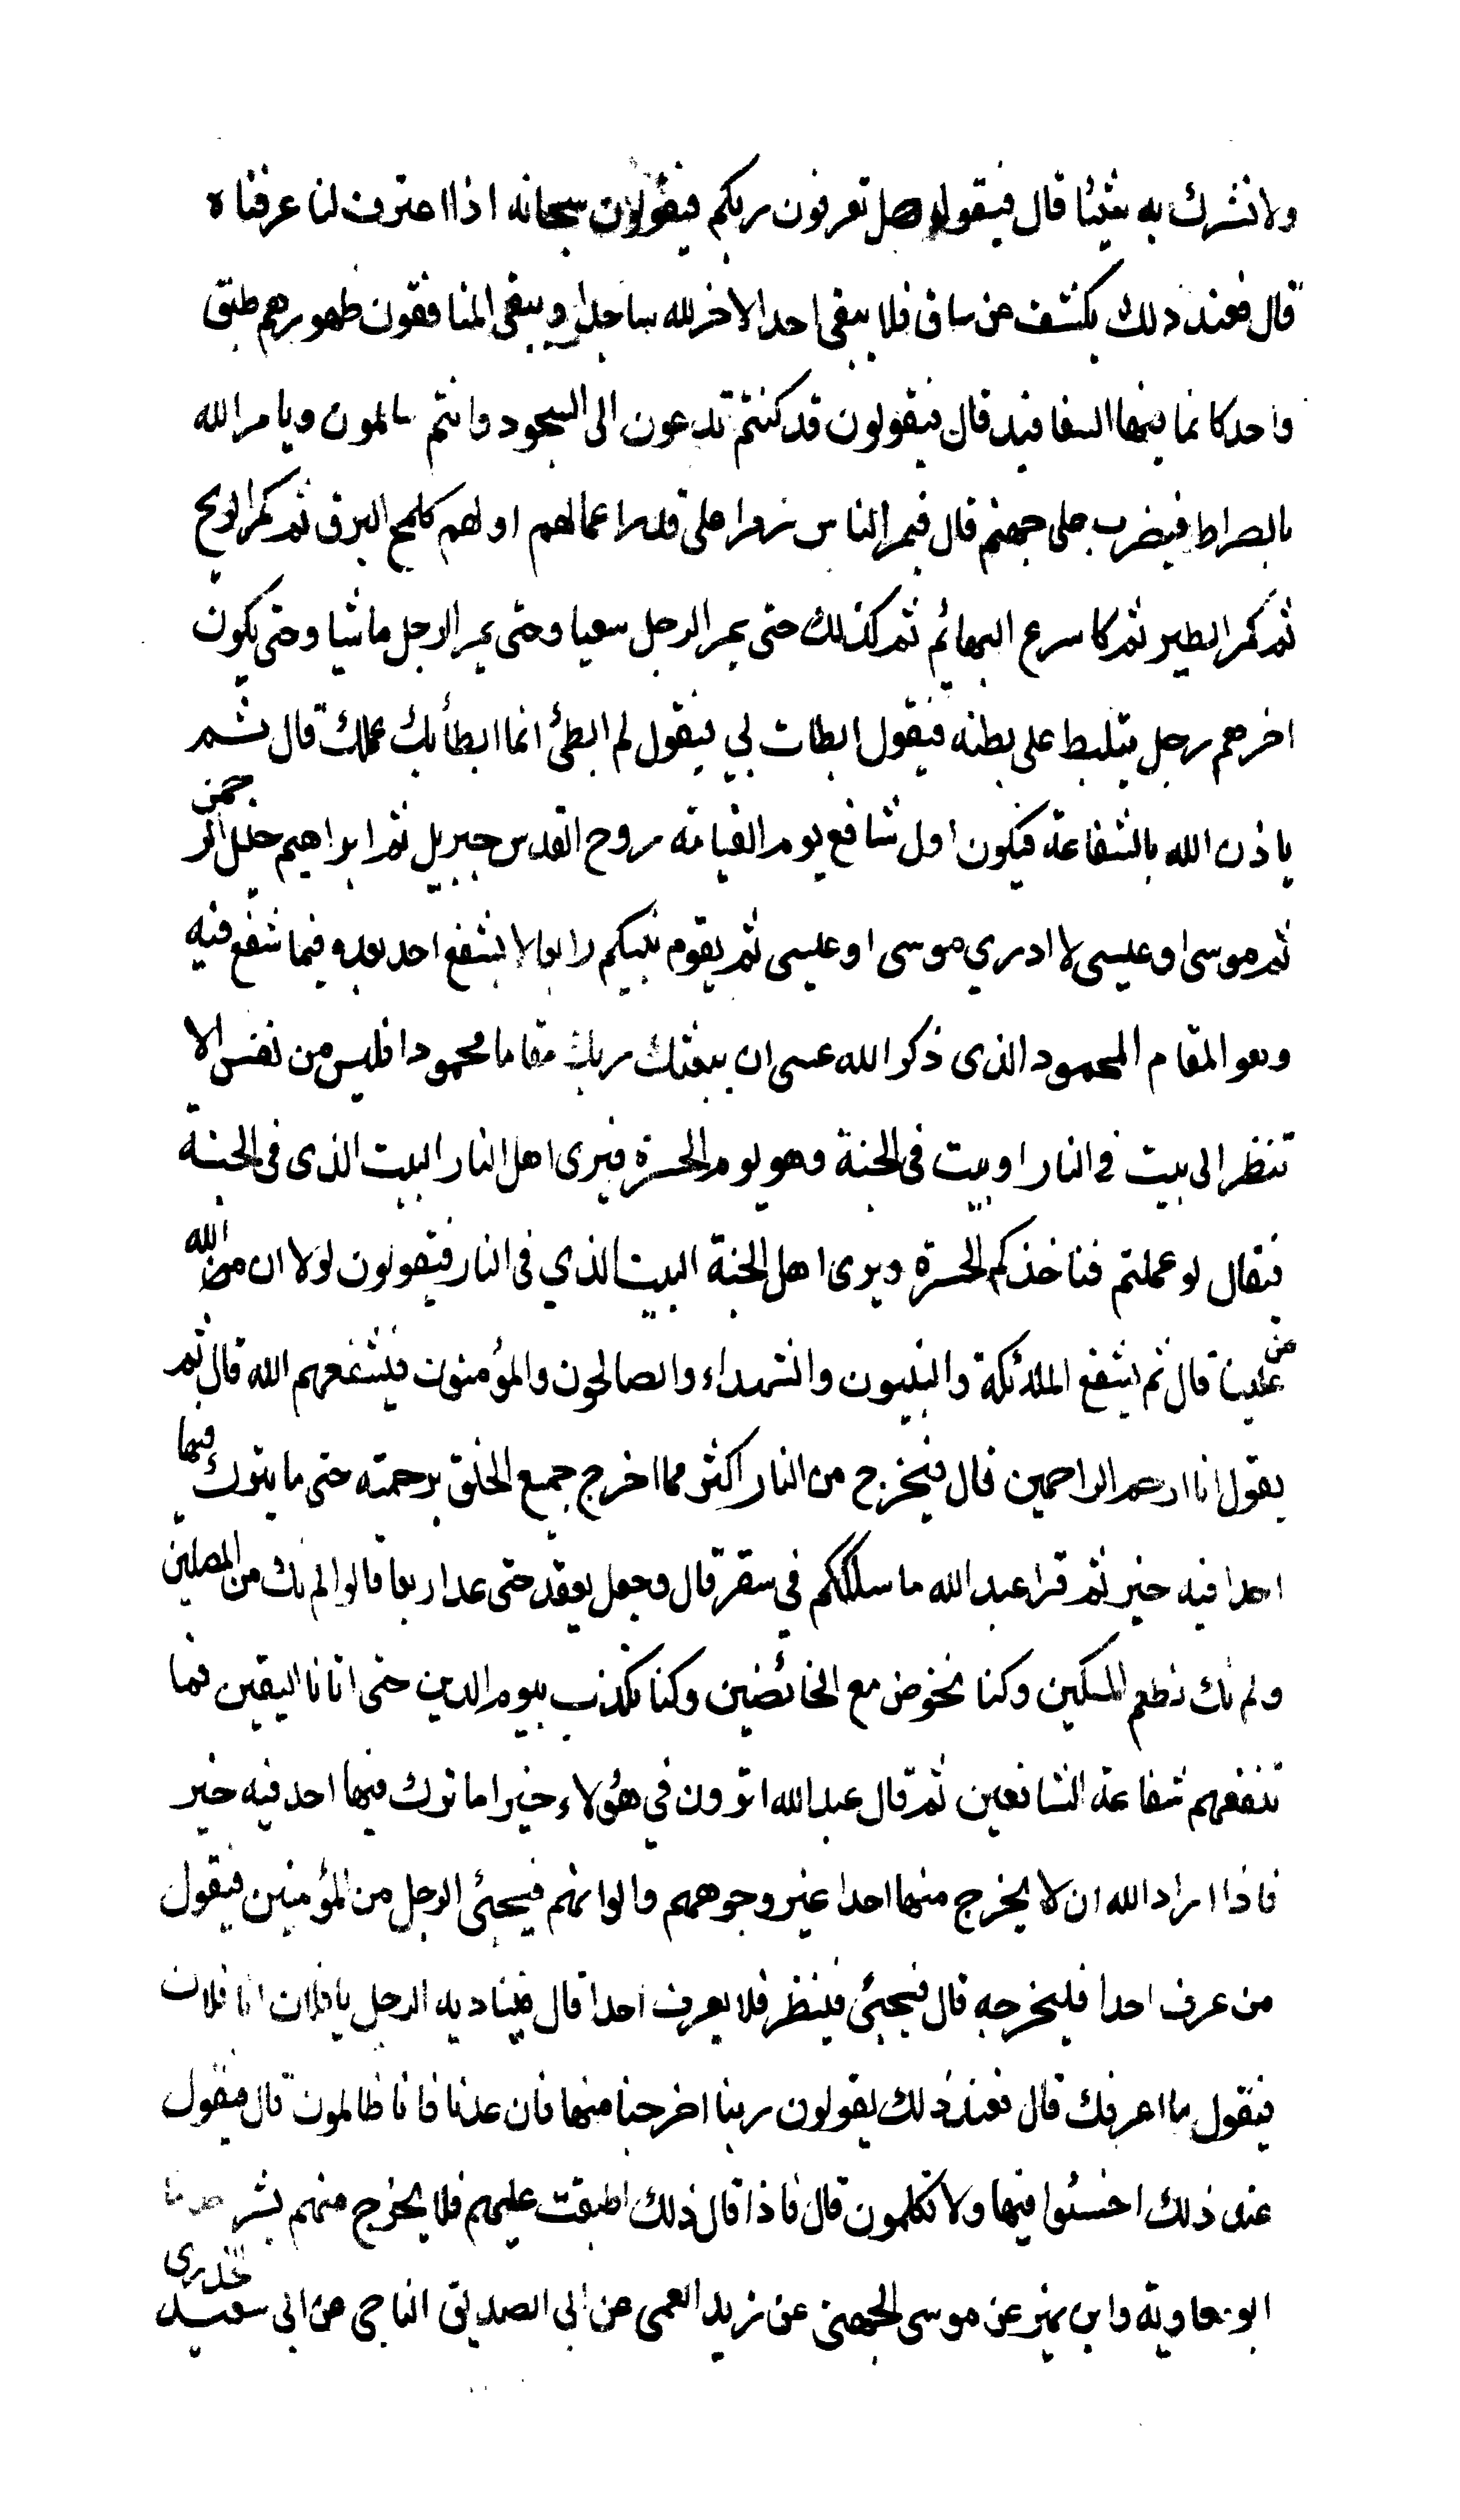 ولا نشرك به شيئا قال فيقول هل تعرفون ربكم فيقولون سبحانه اذا اعترف لنا عرفناه
قال فعند ذلك يكشف عن ساق فلا يبقى احد الا خر لله ساجدا ويبقى المنافقون ظهورهم طبق
واحد كانما فيها السفافيد قال فيقولون قد كنتم تدعون الى السجود وانتم سالمون ويامر الله
بالصراط فيضرب على جهنم قال فيمر الناس زمرا على قدر اعمالهم اولهم كلمح البرق ثم كمر الريح
ثم كمر الطير ثم كاسرع البهائم ثم كذلك حتى يمر الرجل سعيا وحتى يمر الرجل ماشيا وحتى يكون
اخرهم رجل يتلبط على بطنه فيقول ابطات بي فيقول لم ابطئ انما ابطأ بك عملك قال ثم
ياذن الله بالشفاعة فيكون اول شافع يوم القيامة روح القدس جبريل ثم ابراهيم خليل الرحمن
ثم موسى او عيسى لا ادري موسى او عيسى ثم يقوم نبيكم رابعا لا يشفع احد بعده فيما شفع فيه
وهو المقام المحمود الذى ذكر الله عسى ان يبعثك ربك مقاما محمودا فليس من نفس الا
تنظر الى بيت في النار او بيت في الجنة وهو يوم الحسرة فيرى اهل النار البيت الذى في الجنة
فيقال لو عملتم فتاخذكم الحسرة ويرى اهل الجنة البيت الذي في النار فيقولون لولا ان من الله
علينا قال ثم يشفع الملائكة والنبيون والشهداء والصالحون والمؤمنون فيشفعهم الله قال ثم
يقول انا ارحم الراحمين قال فيخرج من النار اكثر مما اخرج جميع الخلق برحمته حتى ما يترك فيها
احدا فيه خير ثم قرا عبد الله ما سلككم في سقر قال وجعل يعقد حتى عد اربعا قالوا لم نك من المصلين
ولم نك نطعم المسكين وكنا نخوض مع الخائضين وكنا نكذب بيوم الدين حتى اتانا اليقين فما
تنفعهم شفاعة الشافعين ثم قال عبد الله اترون في هؤلاء خيرا ما ترك فيها احد فيه خير
فاذا اراد الله ان لا يخرج منها احدا غير وجوههم والوانهم فيجئ الرجل من المؤمنين فيقول
من عرف احدا فليخرجه قال فيجئ فينظر فلا يعرف احدا قال فيناديه الرجل يا فلان انا فلان
فيقول ما اعرفك قال فعند ذلك يقولون ربنا اخرجنا منها فان عدنا فانا ظالمون قال فيقول
عند ذلك اخسئوا فيها ولا تكلمون قال فاذا قال ذلك اطبقت عليهم فلا يخرج منهم بشر حدثنا
ابو معاوية وابن نمير عن موسى الجهني عن زيد العمى عن ابى الصديق الناجي عن ابى سعيد الخدرى